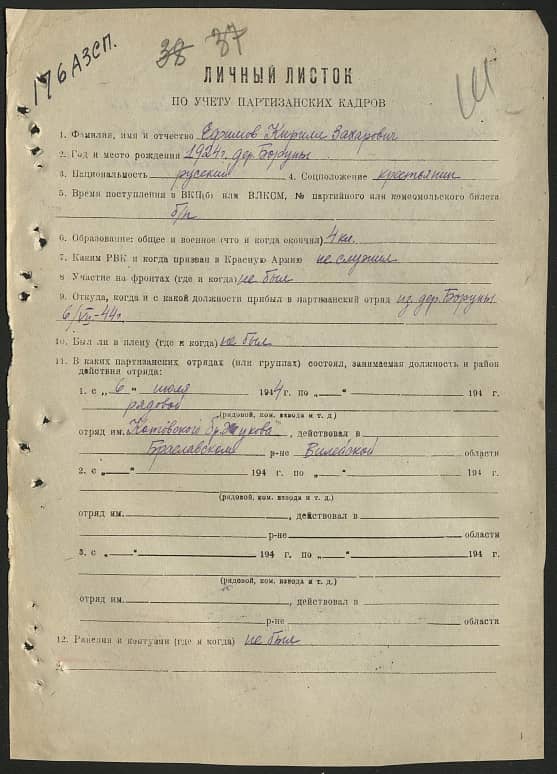 176 АЗСП.
38 37
ЛИЧНЫЙ ЛИСТОК
ПО УЧЕТУ ПАРТИЗАНСКИХ КАДРОВ
1. Фамилия, имя и отчество Ефимов Кирилл Захарович
2. Год и место рождения 1924г. дер. Боруны
3. Национальность русский 4. Соцположение крестьянин
5. Время поступления в ВКП(б) или ВЛКСМ, № партийного или комсомольского билета
б/п
6. Образование: общее и военное (что и когда окончил) 4 кл.
7. Каким РВК и когда призван в Красную Армию не служил
8 Участие на фронтах (где и когда) не был
9. Откуда, когда и с какой должности прибыл в партизанский отряд из дер. Боруны
6/VII-44г.
10. Был ли в плену (где и когда) не был
11. В каких партизанских отрядах (или группах) состоял, занимаемая должность и район
действия отряда:
1. с „ 6 “ июля 1944 г. по „ “ 194 г.
рядовой
(рядовой, ком. взвода и т. д.)
отряд им. Котовского бр. Жукова , действовал в
Браславском р-не Вилейской области
2. с „ “ 194 г. по „ “ 194 г.
(рядовой, ком. взвода и т. д.)
отряд им. , действовал в
р-не области
3. с „ “ 194 г. по „ “ 194 г.
(рядовой, ком. взвода и т. д.)
отряд им. , действовал в
р-не области
12. Ранения и контузии (где и когда) не был